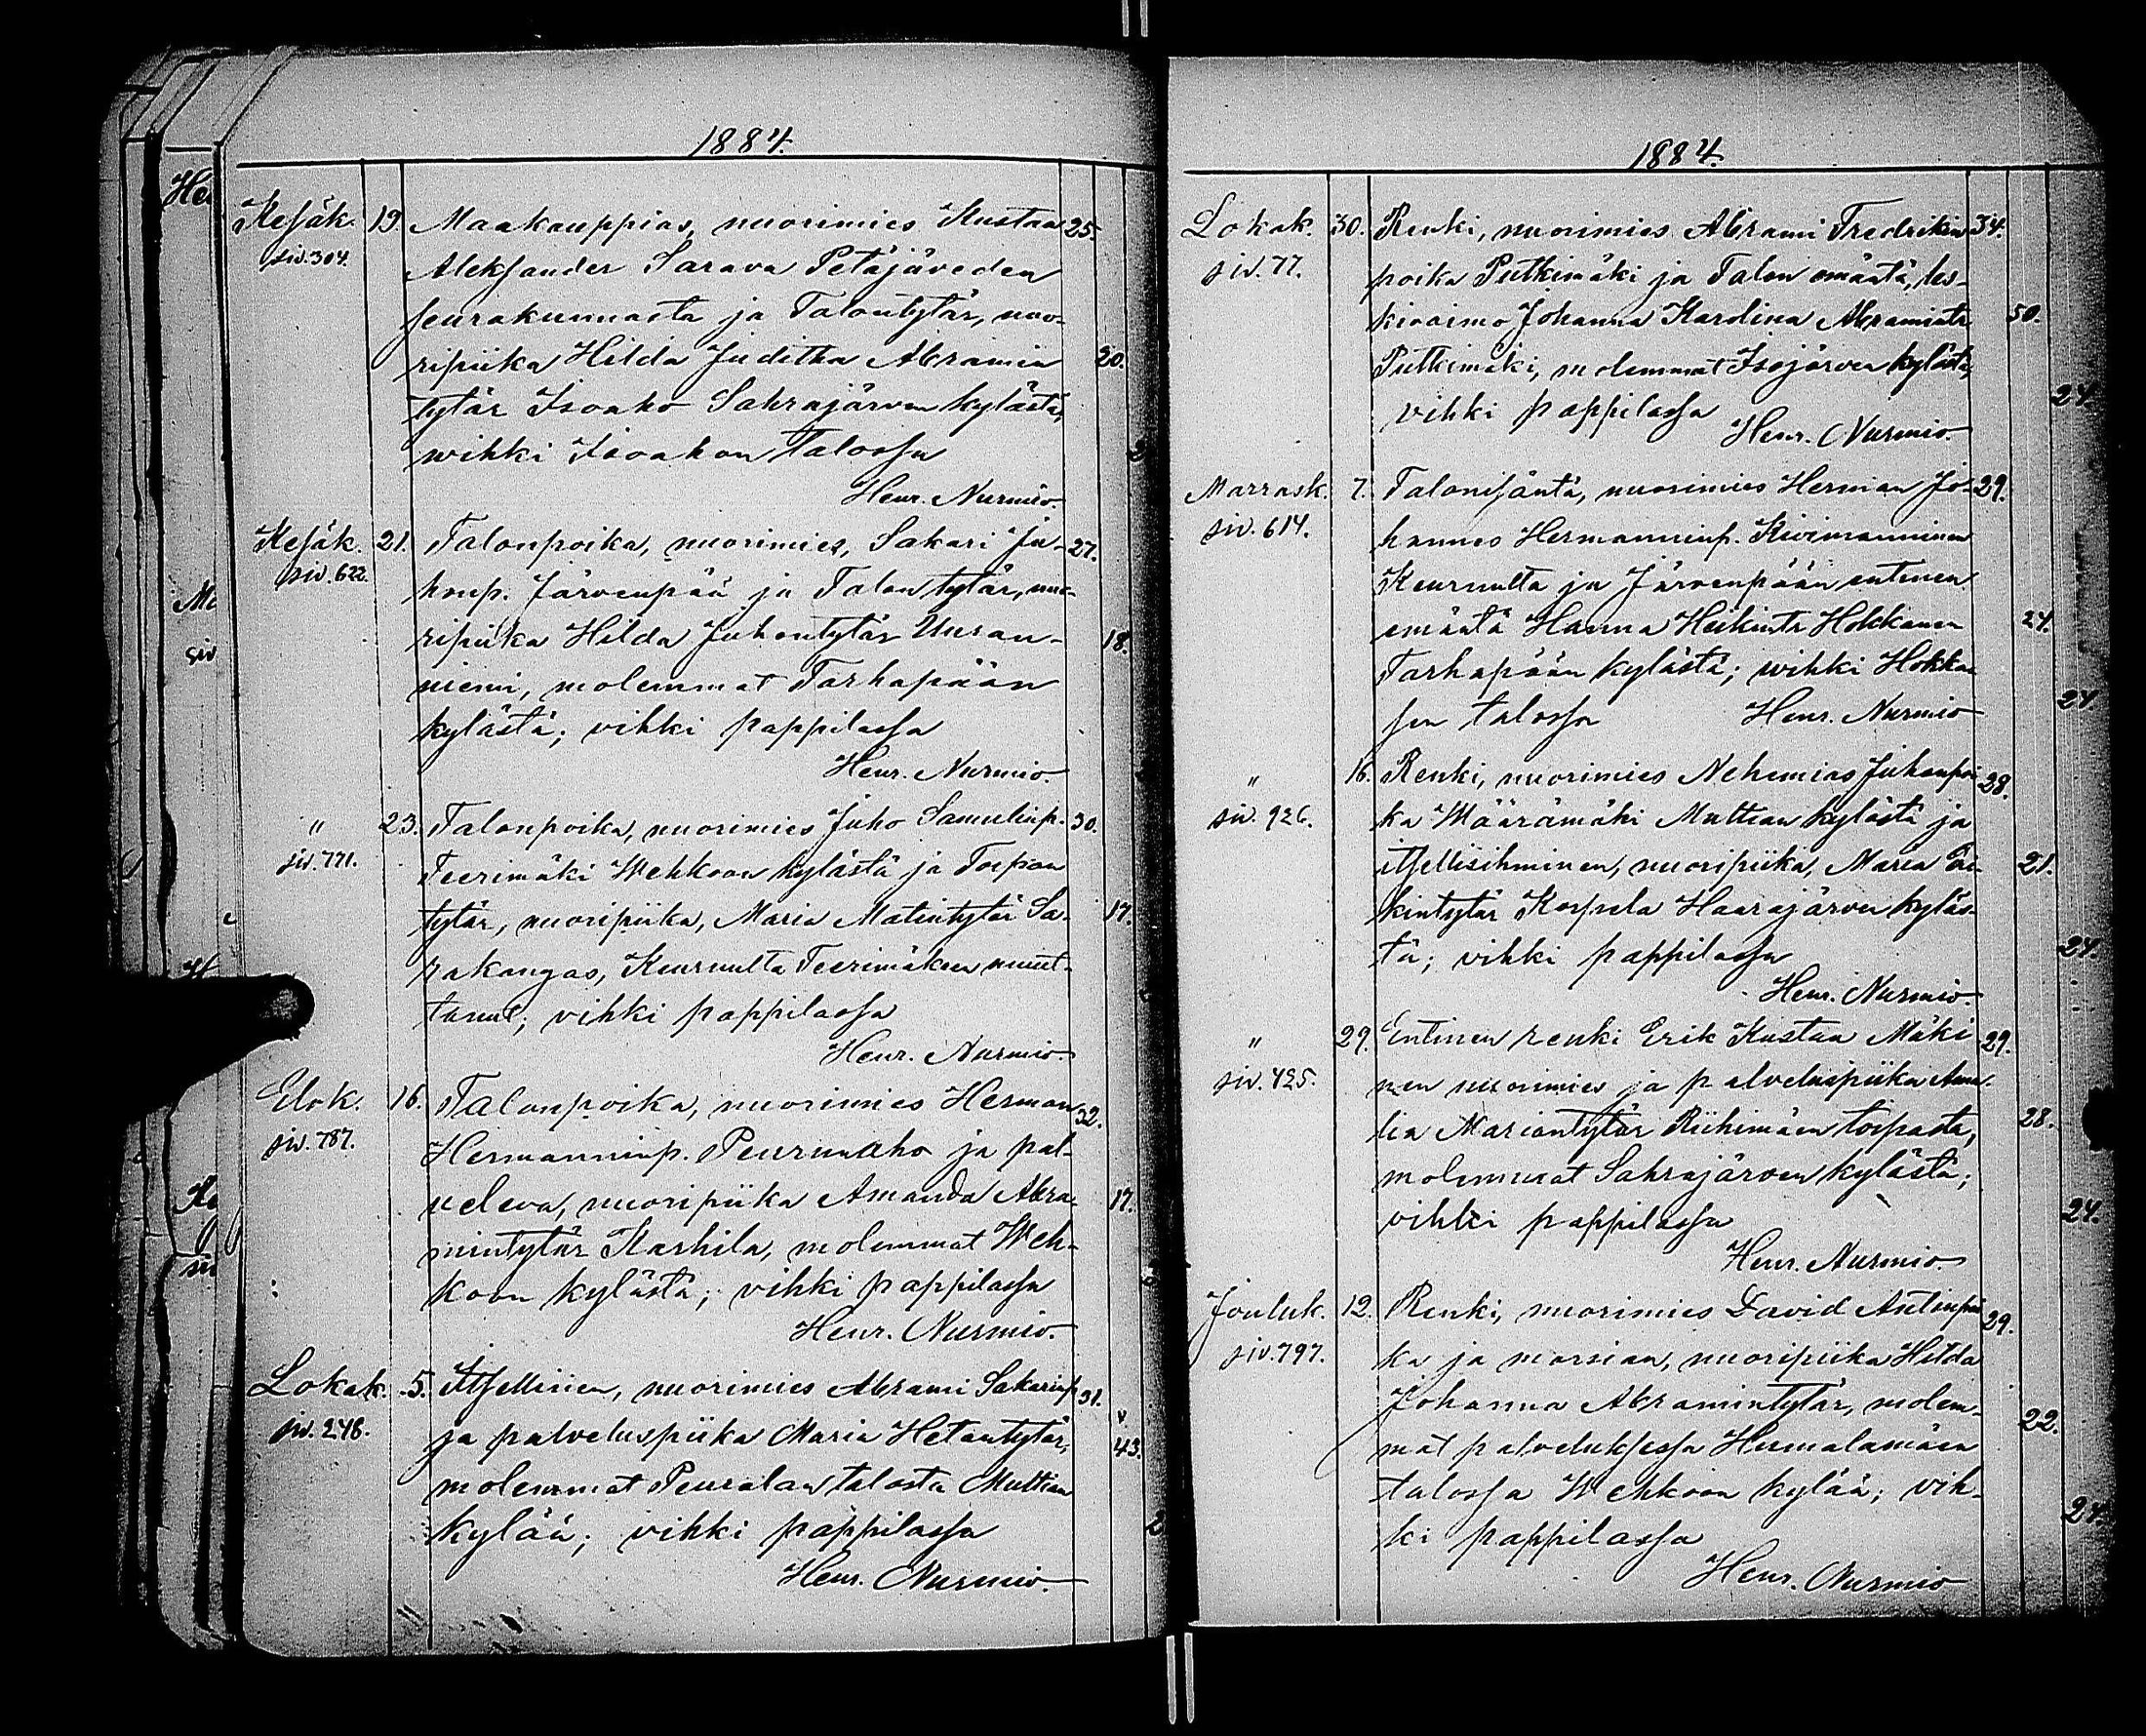 1884.
Kesäk. 19. Maakauppias, nuorimies Kustaa 25.
siv. 304. Aleksander Sarava Petäjäveden
seurakunnasta ja Talontytär, nuo-
ripiika Hilda Juditha Abramin 20.
tytär Isoaho Sahrajärven kylästä,
wihki Isoahon talossa
Henr. Nurmio.
Kesäk. 21. Talonpoika, nuorimies, Sakari Ju- 27.
siv. 622. honp. Järvenpää ja Talon tytär, nuo-
ripiika Hilda Juhontytär Uuran- 18.
niemi, molemmat Tarhapään
kylästä; vihki pappilassa
Henr. Nurmio.
" 23. Talonpoika, nuorimies Juho Samulinp. 30.
siv. 771. Teerimäki Wehkoon kylästä ja Torpan
tytär, nuoripiika, Maria Matintytär Sa- 17.
rakangas, Keuruulta Teerimäkeen muut-
tanut; vihki pappilassa
Henr. Nurmio
Elok. 16. Talonpoika, nuorimies Herman 32.
siv. 787. Hermanninp. Peuruaho ja pal-
veleva, nuoripiika Amanda Abra- 17.
mintytär Karhila, molemmat Weh-
koon kylästä; vihki pappilassa
Henr. Nurmio.
Lokak. 5. Itsellinen, nuorimies Abrami Sakarinp. 31.
siv. 248. ja palveluspiika Maria Hetantytär, v. 43.
molemmat Peuralan talosta Multian
kylää; vihki pappilassa
Henr. Nurmio.
1884.
Lokak. 30. Renki, nuorimies Abrami Fredrikin 34.
siv. 77. poika Putkimäki ja Talon emäntä, les-
kivaimo Johanna Karolina Abramintr 50.
Putkimäki, molemmat Isojärven kylästä,
vihki pappilassa 24
Henr. Nurmio.
Marrask. 7. Talonisäntä, nuorimies Herman Jo- 29.
siv. 614. hannes Hermanninp. Kivimanninen
Keuruulta ja Järvenpään entinen
emäntä Hanna Heikintr Hokkanen 24.
Tarhapään kylästä; wihki Hokka-
sen talossa Henr. Nurmio 24
" 16. Renki, nuorimies Nehemias Juhanpoi 28.
siv. 926. ka Määrämäki Multian kylästä ja
itsellisihminen, nuoripiika, Maria Eri- 21.
kintytär Korpela Haarajärven kyläs-
tä; vihki pappilassa 24.
Henr. Nurmio.
" 29. Entinen renki Erik Kustaa Mäki 29.
siv. 425. nen nuorimies ja palveluspiika Ama-
lia Mariantytär Riihimäen torpasta, 28.
molemmat Sahrajärven kylästä;
vihki pappilassa 24.
Henr. Nurmio.
Jouluk. 12. Renki, nuorimies David Antinpoi 29.
siv. 797. ka ja morsian, nuoripiika Hilda
Johanna Abramintytär, molem- 22.
mat palveluksessa Humalamäen
talossa Wehkoon kylää; vih-
ki pappilassa 24.
Henr. Nurmio